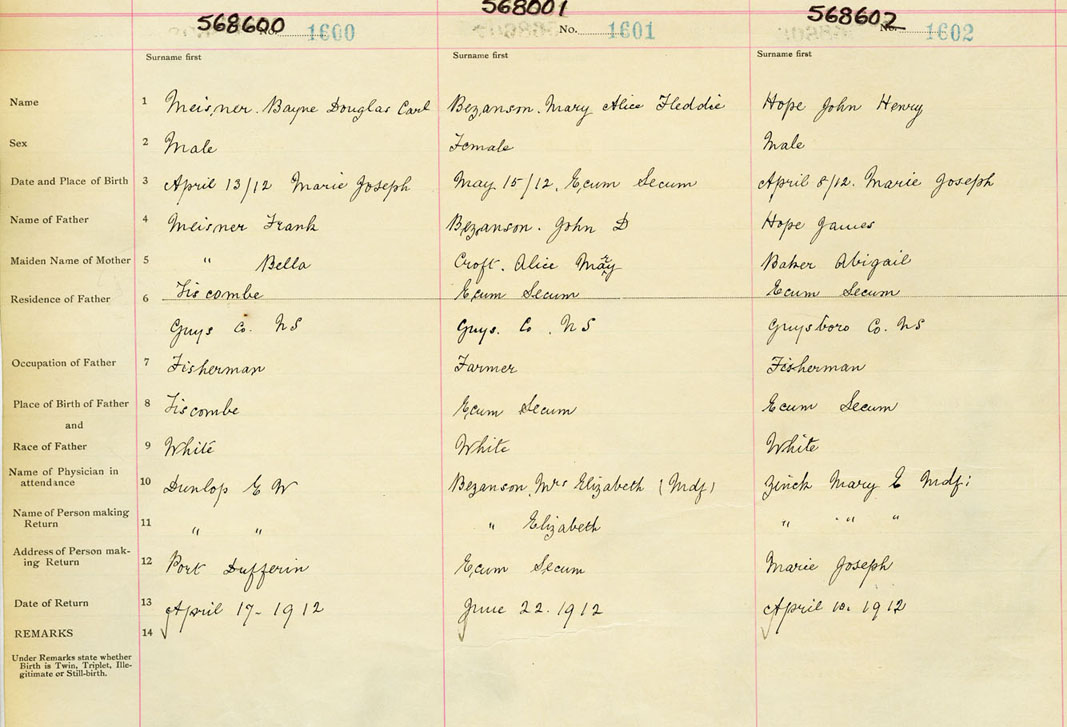 568600 568001 568602
No. 1600 No. 1601 No. 1602
Surname first Surname first Surname first
Name 1 Meisner. Bayne Douglas Carl Bezanson. Mary Alice Fleddie Hope John Henry
Sex 2 Male Female Male
Date and Place of Birth 3 April 13/12 Marie Joseph May 15/12. Ecum Secum April 8/12. Marie Joseph
Name of Father 4 Meisner Frank Bezanson. John D Hope James
Maiden Name of Mother 5 " Bella Croft. Alice May Baker Abigail
Residence of Father 6 Liscombe Ecum Secum Ecum Secum
Guys Co. NS Guys. Co. NS Guysboro Co. NS
Occupation of Father 7 Fisherman Farmer Fisherman
Place of Birth of Father 8 Liscombe Ecum Secum Ecum Secum
and
Race of Father 9 White White White
Name of Physician in
attendance 10 Dunlop E W Bezanson, Mrs Elizabeth (Mdf) Zinck Mary E Mdf:
Name of Person making
Return 11 " " " Elizabeth " " "
Address of Person mak-
ing Return 12 Port Dufferin Ecum Secum Marie Joseph
Date of Return 13 April 17-1912 June 22. 1912 April 10. 1912
REMARKS 14
Under Remarks state whether
Birth is Twin, Triplet, Ille-
gitimate or Still-birth.